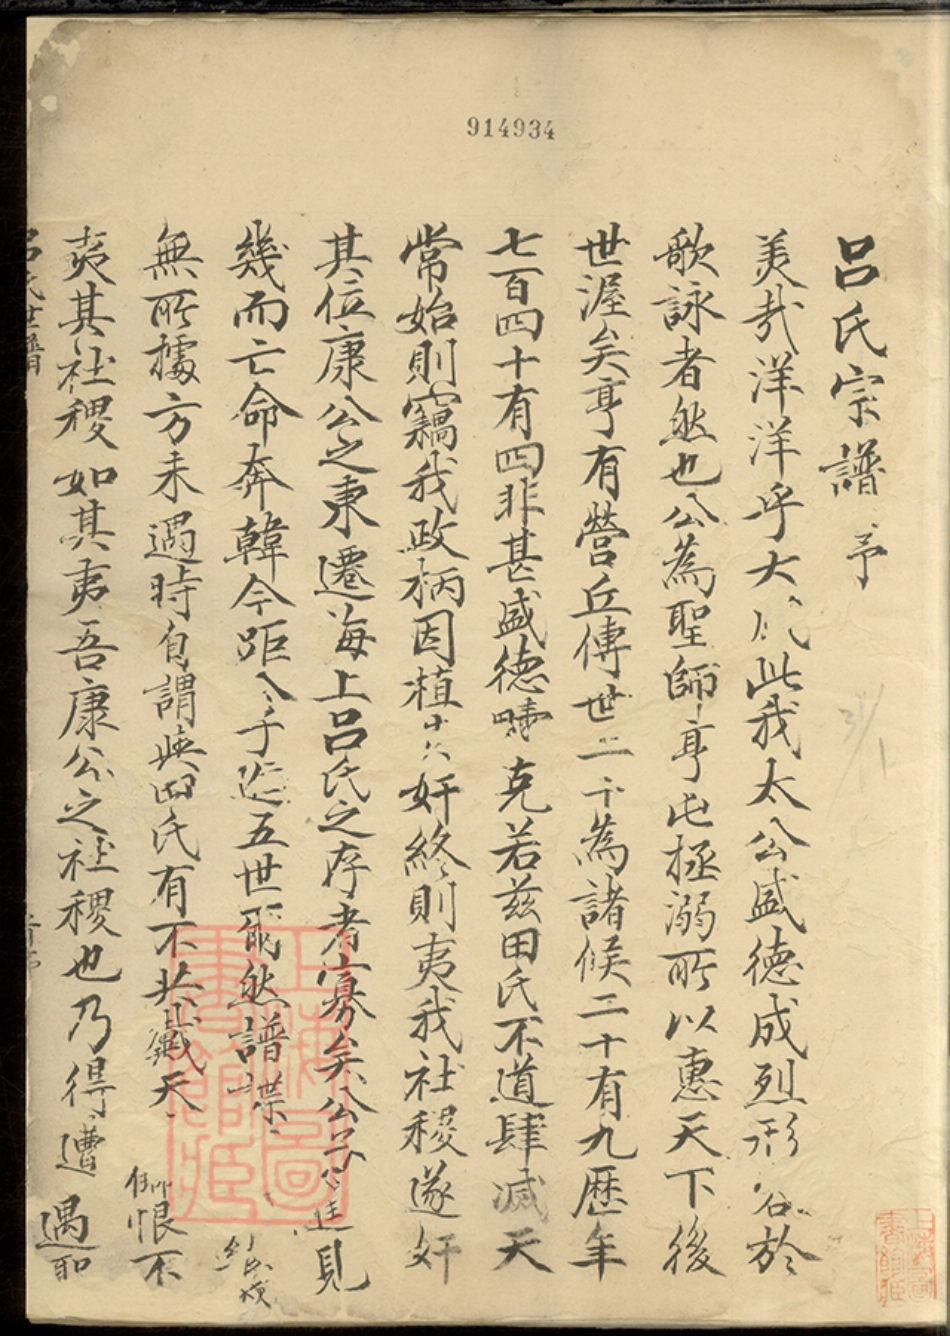 914934
呂氏宗譜 序
美哉洋洋乎大 此我太公盛德成烈形 於
歌詠者然也公為聖師亨屯拯溺所以惠天下後
世渥矣享有營丘傳世二十為諸候二十有九歷年
七百四十有四非甚盛德疇克若茲田氏不道肆滅天
常始則竊我政柄因植 奸終則夷我社稷遂奸
其位康公之東遷海上呂氏之存者寡矣公 見
幾而亡命奔韓今距 五世 然譜牒
無所據方未遇時自謂與田氏有不共戴天 恨不
夷其社稷如其夷吾康公之社稷也乃得遭遇
呂氏世譜
上海圖書館藏